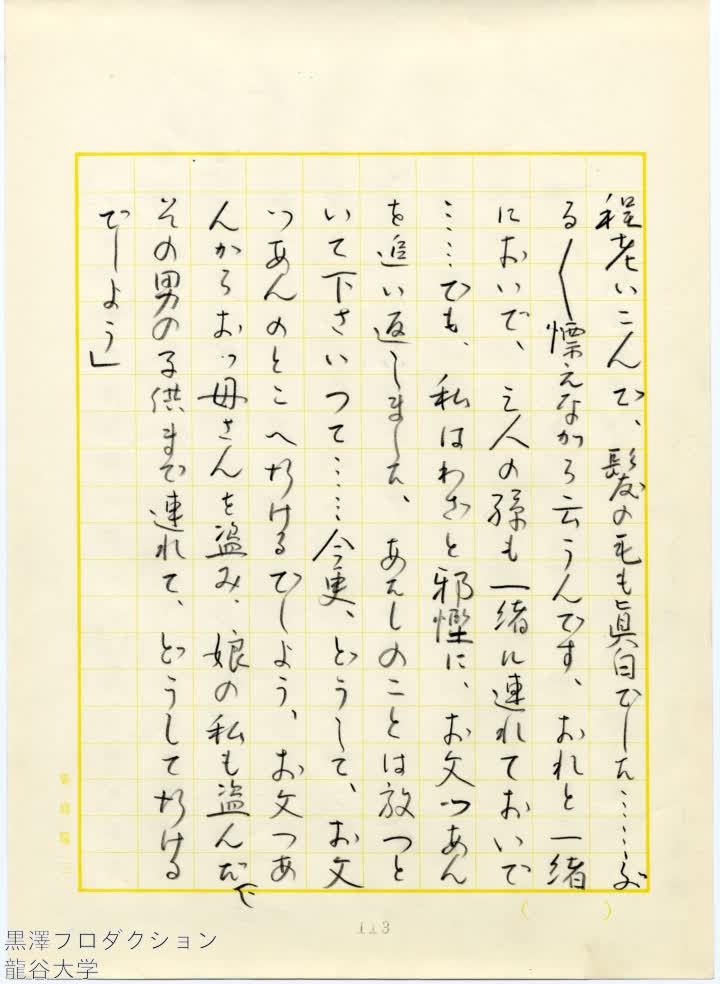 程老いこんで、髪の毛も眞白でした……ぶ
る〱慄えながら云うんです、おれと一緒
においで、三人の孫も一緒に連れておいで
……でも、私はわざと邪慳に、お文つあん
を追い返しました、あたしのことは放つと
いて下さいつて……今更、どうして、お文
つあんのとこへ行けるでしよう、お文つあ
んからおっ母さんを盗み、娘の私も盗んだ
その男の子供まで連れて、どうして行ける
でしよう」
113
黒澤プロダクション
龍谷大学